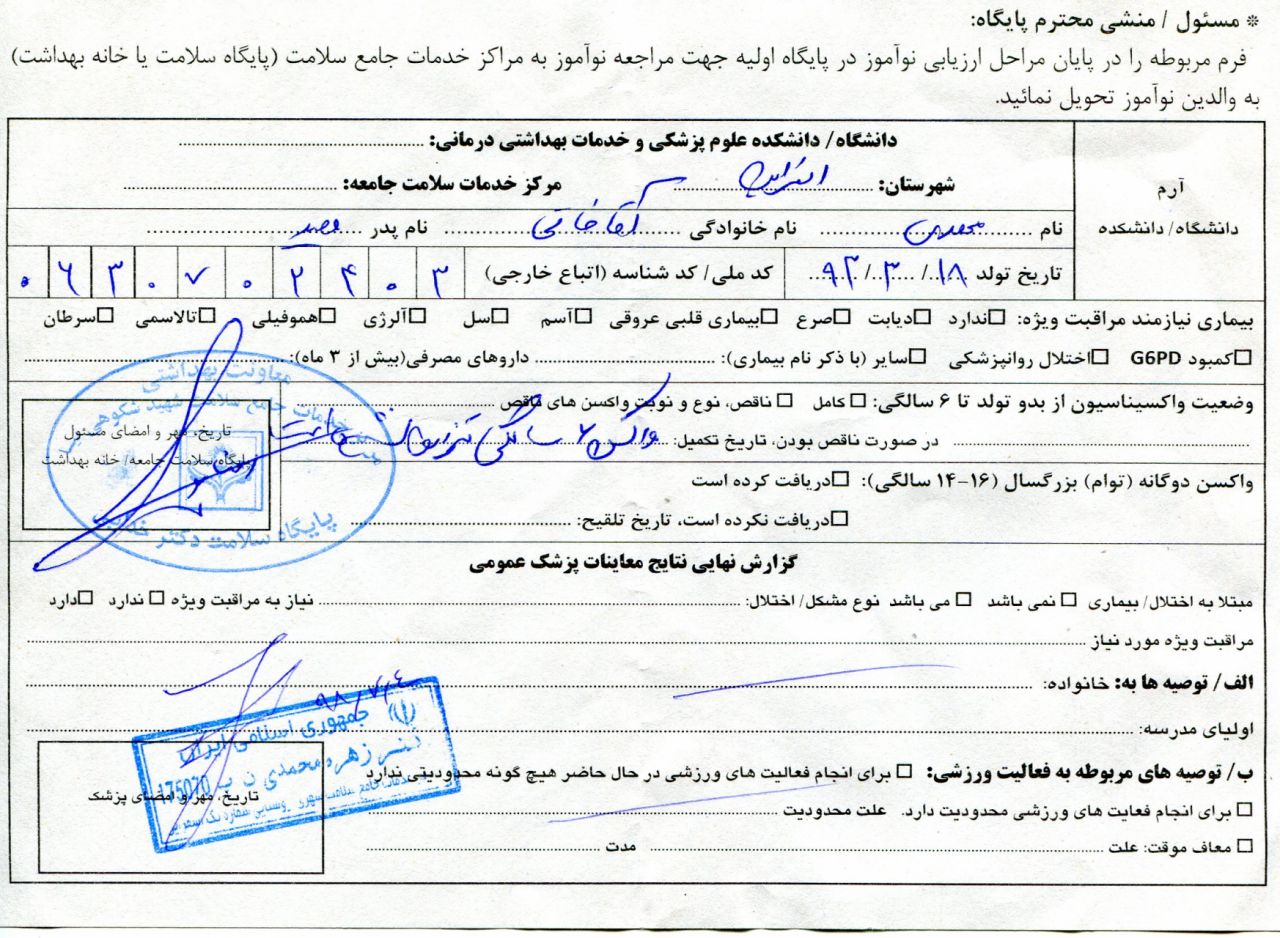 * مسئول / منشی محترم پایگاه:
فرم مربوطه را در پایان مراحل ارزیابی نوآموز در پایگاه اولیه جهت مراجعه نوآموز به مراکز خدمات جامع سلامت (پایگاه سلامت یا خانه بهداشت)
به والدین نوآموز تحویل نمائید.
آرم
دانشگاه/ دانشکده
دانشگاه/ دانشکده علوم پزشکی و خدمات بهداشتی درمانی:
شهرستان: مرکز خدمات سلامت جامعه:
نام نام خانوادگی نام پدر
تاریخ تولد ۱۸/ ۳/ ۹۲ کد ملی/ کد شناسه (اتباع خارجی) ۰۶۳۰۷۰۲۴۰۳
بیماری نیازمند مراقبت ویژه: □ندارد □دیابت □صرع □بیماری قلبی عروقی □آسم □سل □آلرژی □هموفیلی □تالاسمی □سرطان
□کمبود G6PD □اختلال روانپزشکی □سایر (با ذکر نام بیماری): داروهای مصرفی(بیش از ۳ ماه):
وضعیت واکسیناسیون از بدو تولد تا ۶ سالگی: □ کامل □ ناقص، نوع و نوبت واکسن های ناقص
در صورت ناقص بودن، تاریخ تکمیل: واکسن ۶ سالگی
تاریخ، مهر و امضای مسئول
پایگاه سلامت جامعه/ خانه بهداشت
معاونت بهداشتی
خدمات جامع سلامت شهید شکوهی
پایگاه سلامت دکتر
واکسن دوگانه (توام) بزرگسال (۱۶-۱۴ سالگی): □دریافت کرده است
□دریافت نکرده است، تاریخ تلقیح:
گزارش نهایی نتایج معاینات پزشک عمومی
مبتلا به اختلال/ بیماری □ نمی باشد □ می باشد نوع مشکل/ اختلال: نیاز به مراقبت ویژه □ ندارد □دارد
مراقبت ویژه مورد نیاز
الف/ توصیه ها به: خانواده:
اولیای مدرسه:
ب/ توصیه های مربوطه به فعالیت ورزشی: □ برای انجام فعالیت های ورزشی در حال حاضر هیچ گونه محدودیتی ندارد
□ برای انجام فعایت های ورزشی محدودیت دارد. علت محدودیت
□ معاف موقت: علت مدت
۹۸/۷/۴
جمهوری اسلامی ایران
دکتر زهره محمدی ن پ 175070
تاریخ، مهر و امضای پزشک